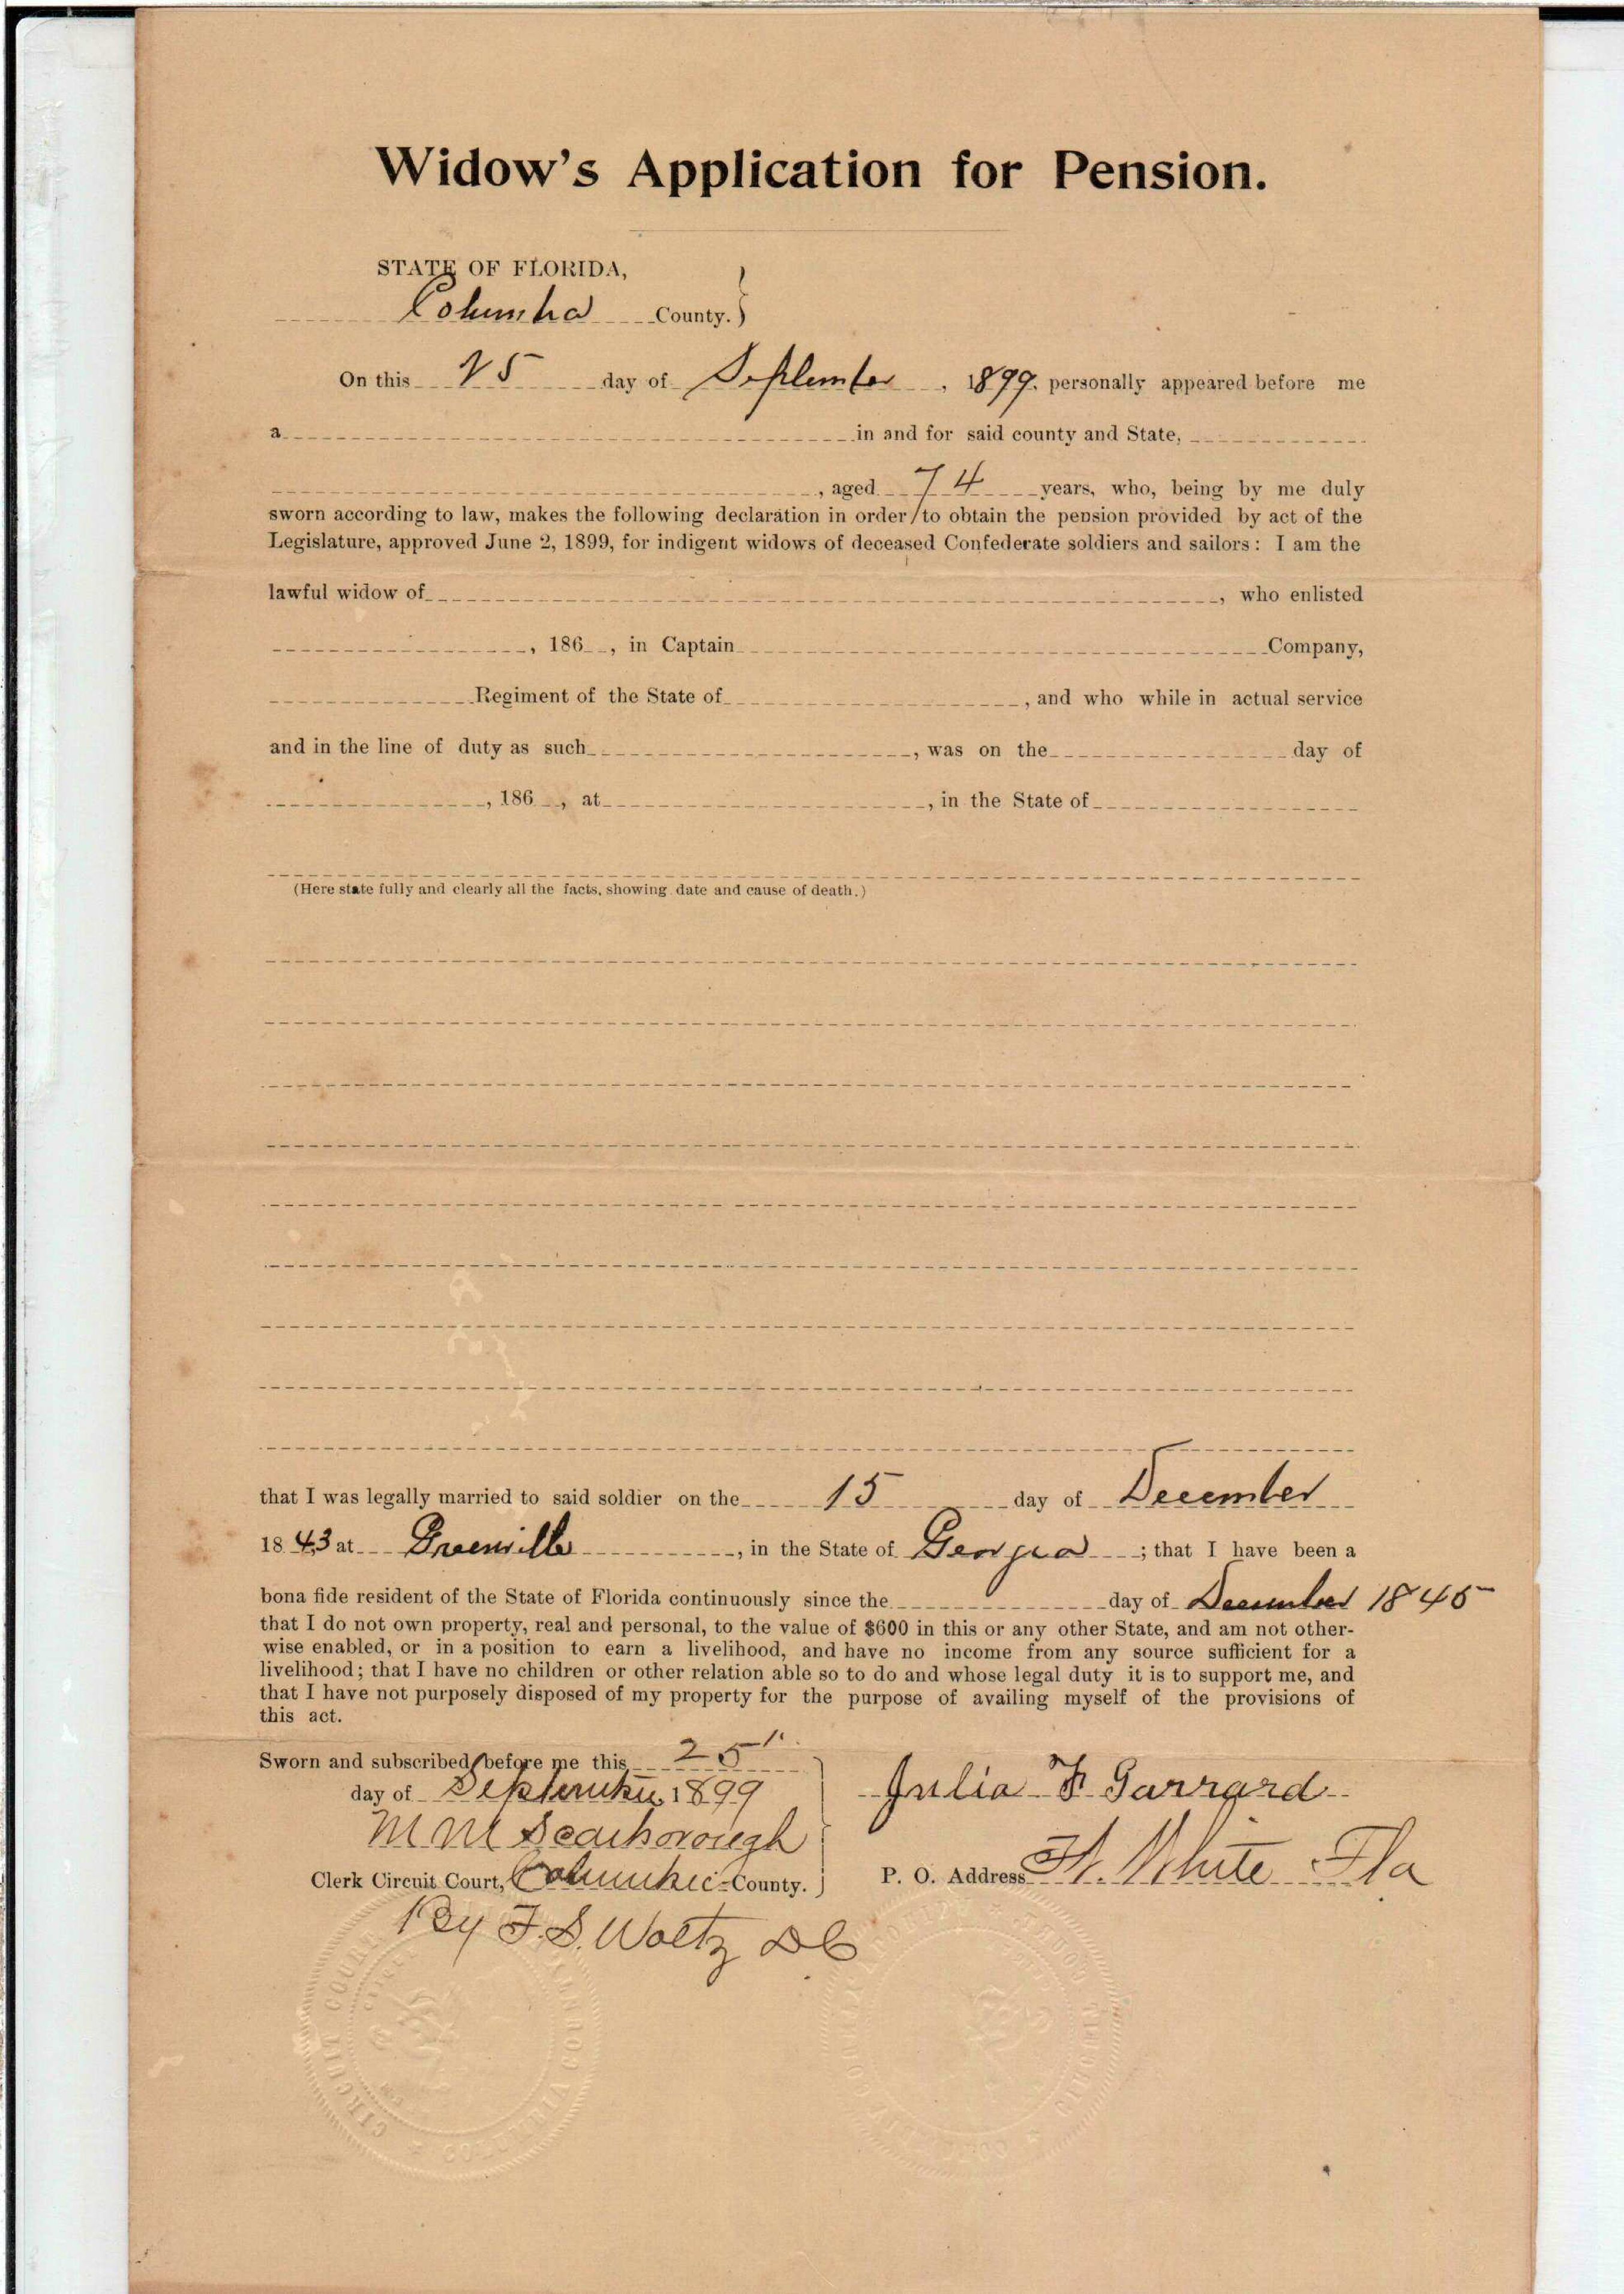 Widow's Application for Pension.
STATE OF FLORIDA,
Columbia County.
On this 25 day of September, 1899, personally appeared before me
a in and for said county and State,
, aged 74 years, who, being by me duly
sworn according to law, makes the following declaration in order to obtain the pension provided by act of the
Legislature, approved June 2, 1899, for indigent widows of deceased Confederate soldiers and sailors: I am the
lawful widow of , who enlisted
, 186 , in Captain Company,
Regiment of the State of , and who while in actual service
and in the line of duty as such , was on the day of
, 186 , at , in the State of
(Here state fully and clearly all the facts, showing date and cause of death.)
that I was legally married to said soldier on the 15 day of December
1843 at Greenville , in the State of Georgia ; that I have been a
bona fide resident of the State of Florida continuously since the day of December 1845
that I do not own property, real and personal, to the value of $600 in this or any other State, and am not other-
wise enabled, or in a position to earn a livelihood, and have no income from any source sufficient for a
livelihood; that I have no children or other relation able so to do and whose legal duty it is to support me, and
that I have not purposely disposed of my property for the purpose of availing myself of the provisions of
this act.
Sworn and subscribed before me this 25"
day of September 1899
Julia F Garrard
M M Scarborough
Clerk Circuit Court, Columbia County.
P. O. Address Ft. White Fla
By F. S. Waltz DC
CIRCUIT COURT
COLUMBIA COUNTY